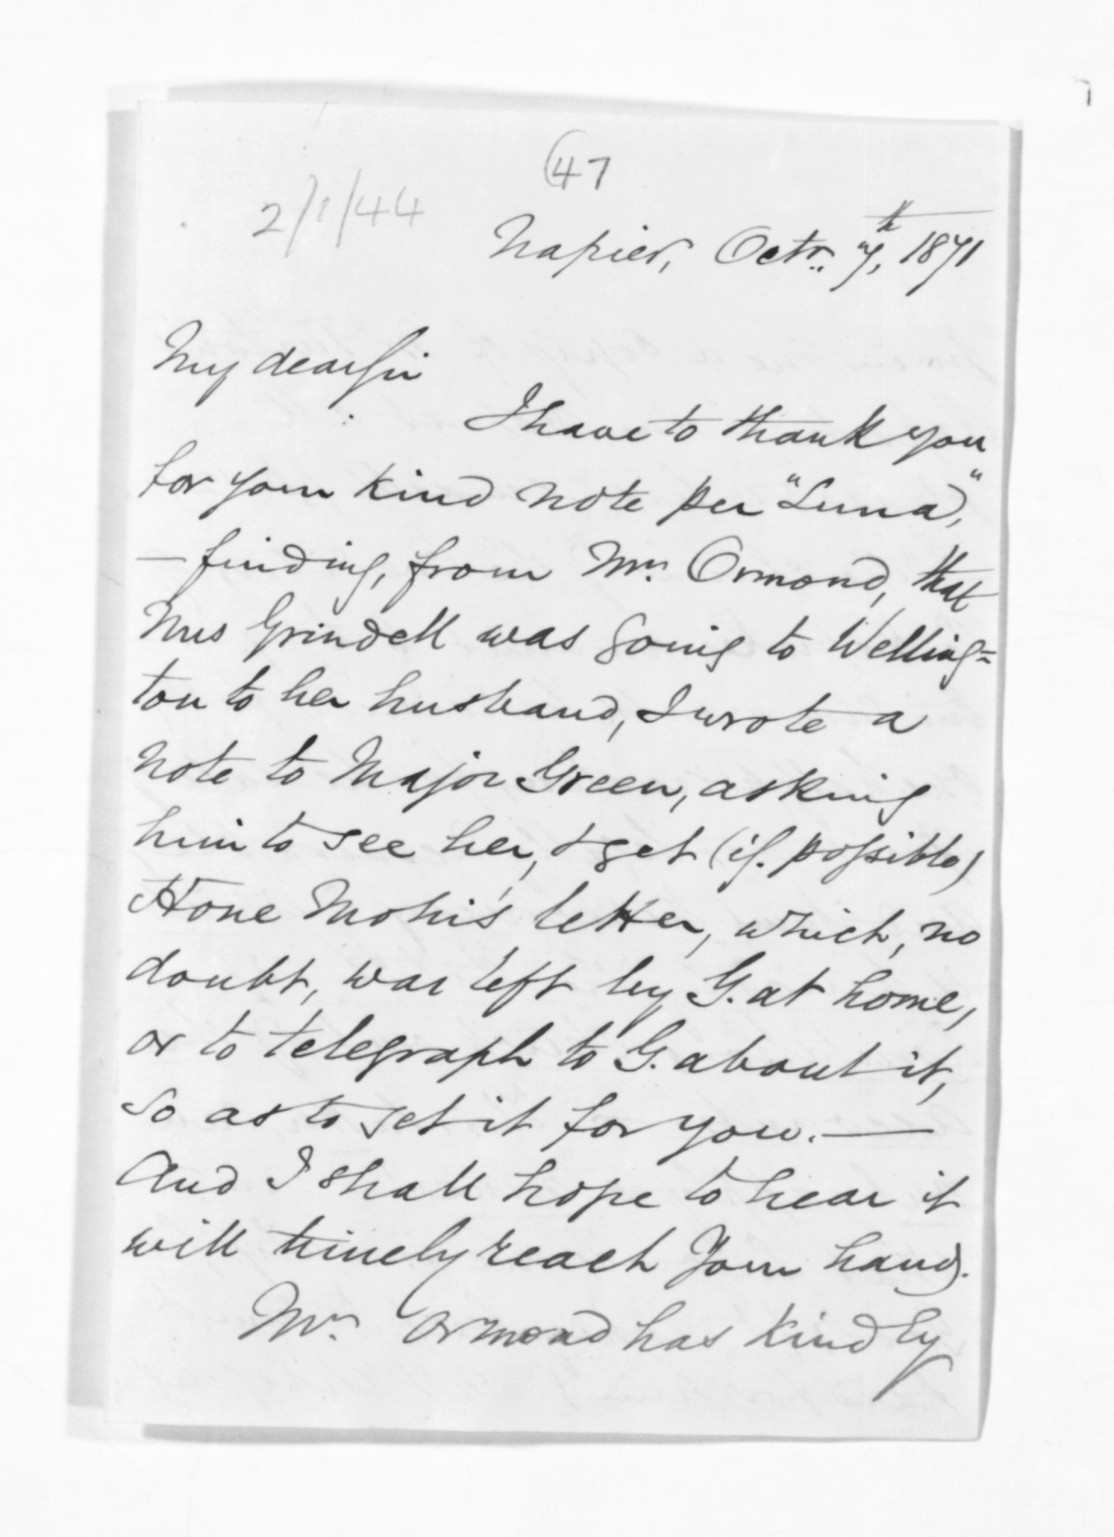 47
2/1/44
Napier, Octr. 7th, 1871
My dear Sir
I have to thank you
for your kind note per "Luna",
— finding, from Mr. Ormond, that
Mrs Grindell was going to Welling=
ton to her husband, I wrote a
note to Major Green, asking
him to see her, & get (if possible)
Hone Mohi's letter, which, no
doubt, was left by G. at home,
or to telegraph to G. about it,
so as to get it for you. —
And I shall hope to hear it
will timely reach your hand.
Mr. Ormond has kindly